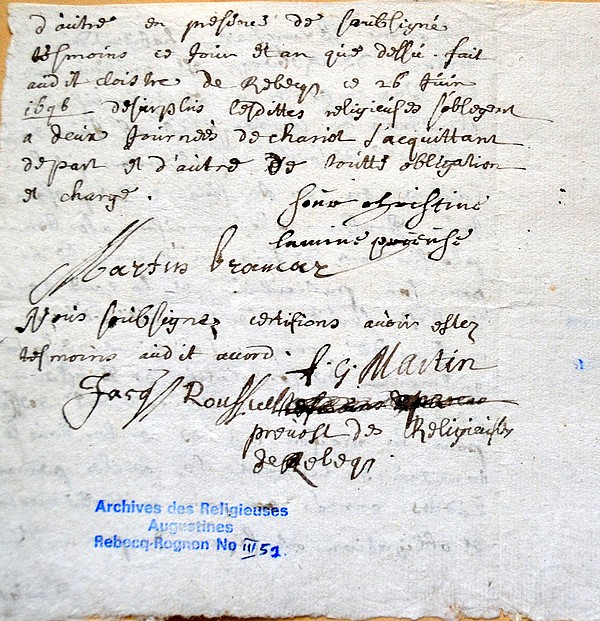 d'autre en presence de soubsigné
tesmoins ce jour et an que dessu. fait
audit cloistre de Rebecq ce 26 Juin
1696 desurplus lesdittes religieuses s'oblegent
a deux Journées de chariot s'acquittant
de part et d'autre de toutte obligation
et charge.
Sœur christine
lamine prieuse
Martin brancar
Nous soubsignez certifions auoir estez
tesmoins audit accord.
f. G. Martin
Jacq Roussielle
preuost des Religieuses
de Rebecq.
Archives des Religieuses
Augustines
Rebecq-Rognon No III 51.